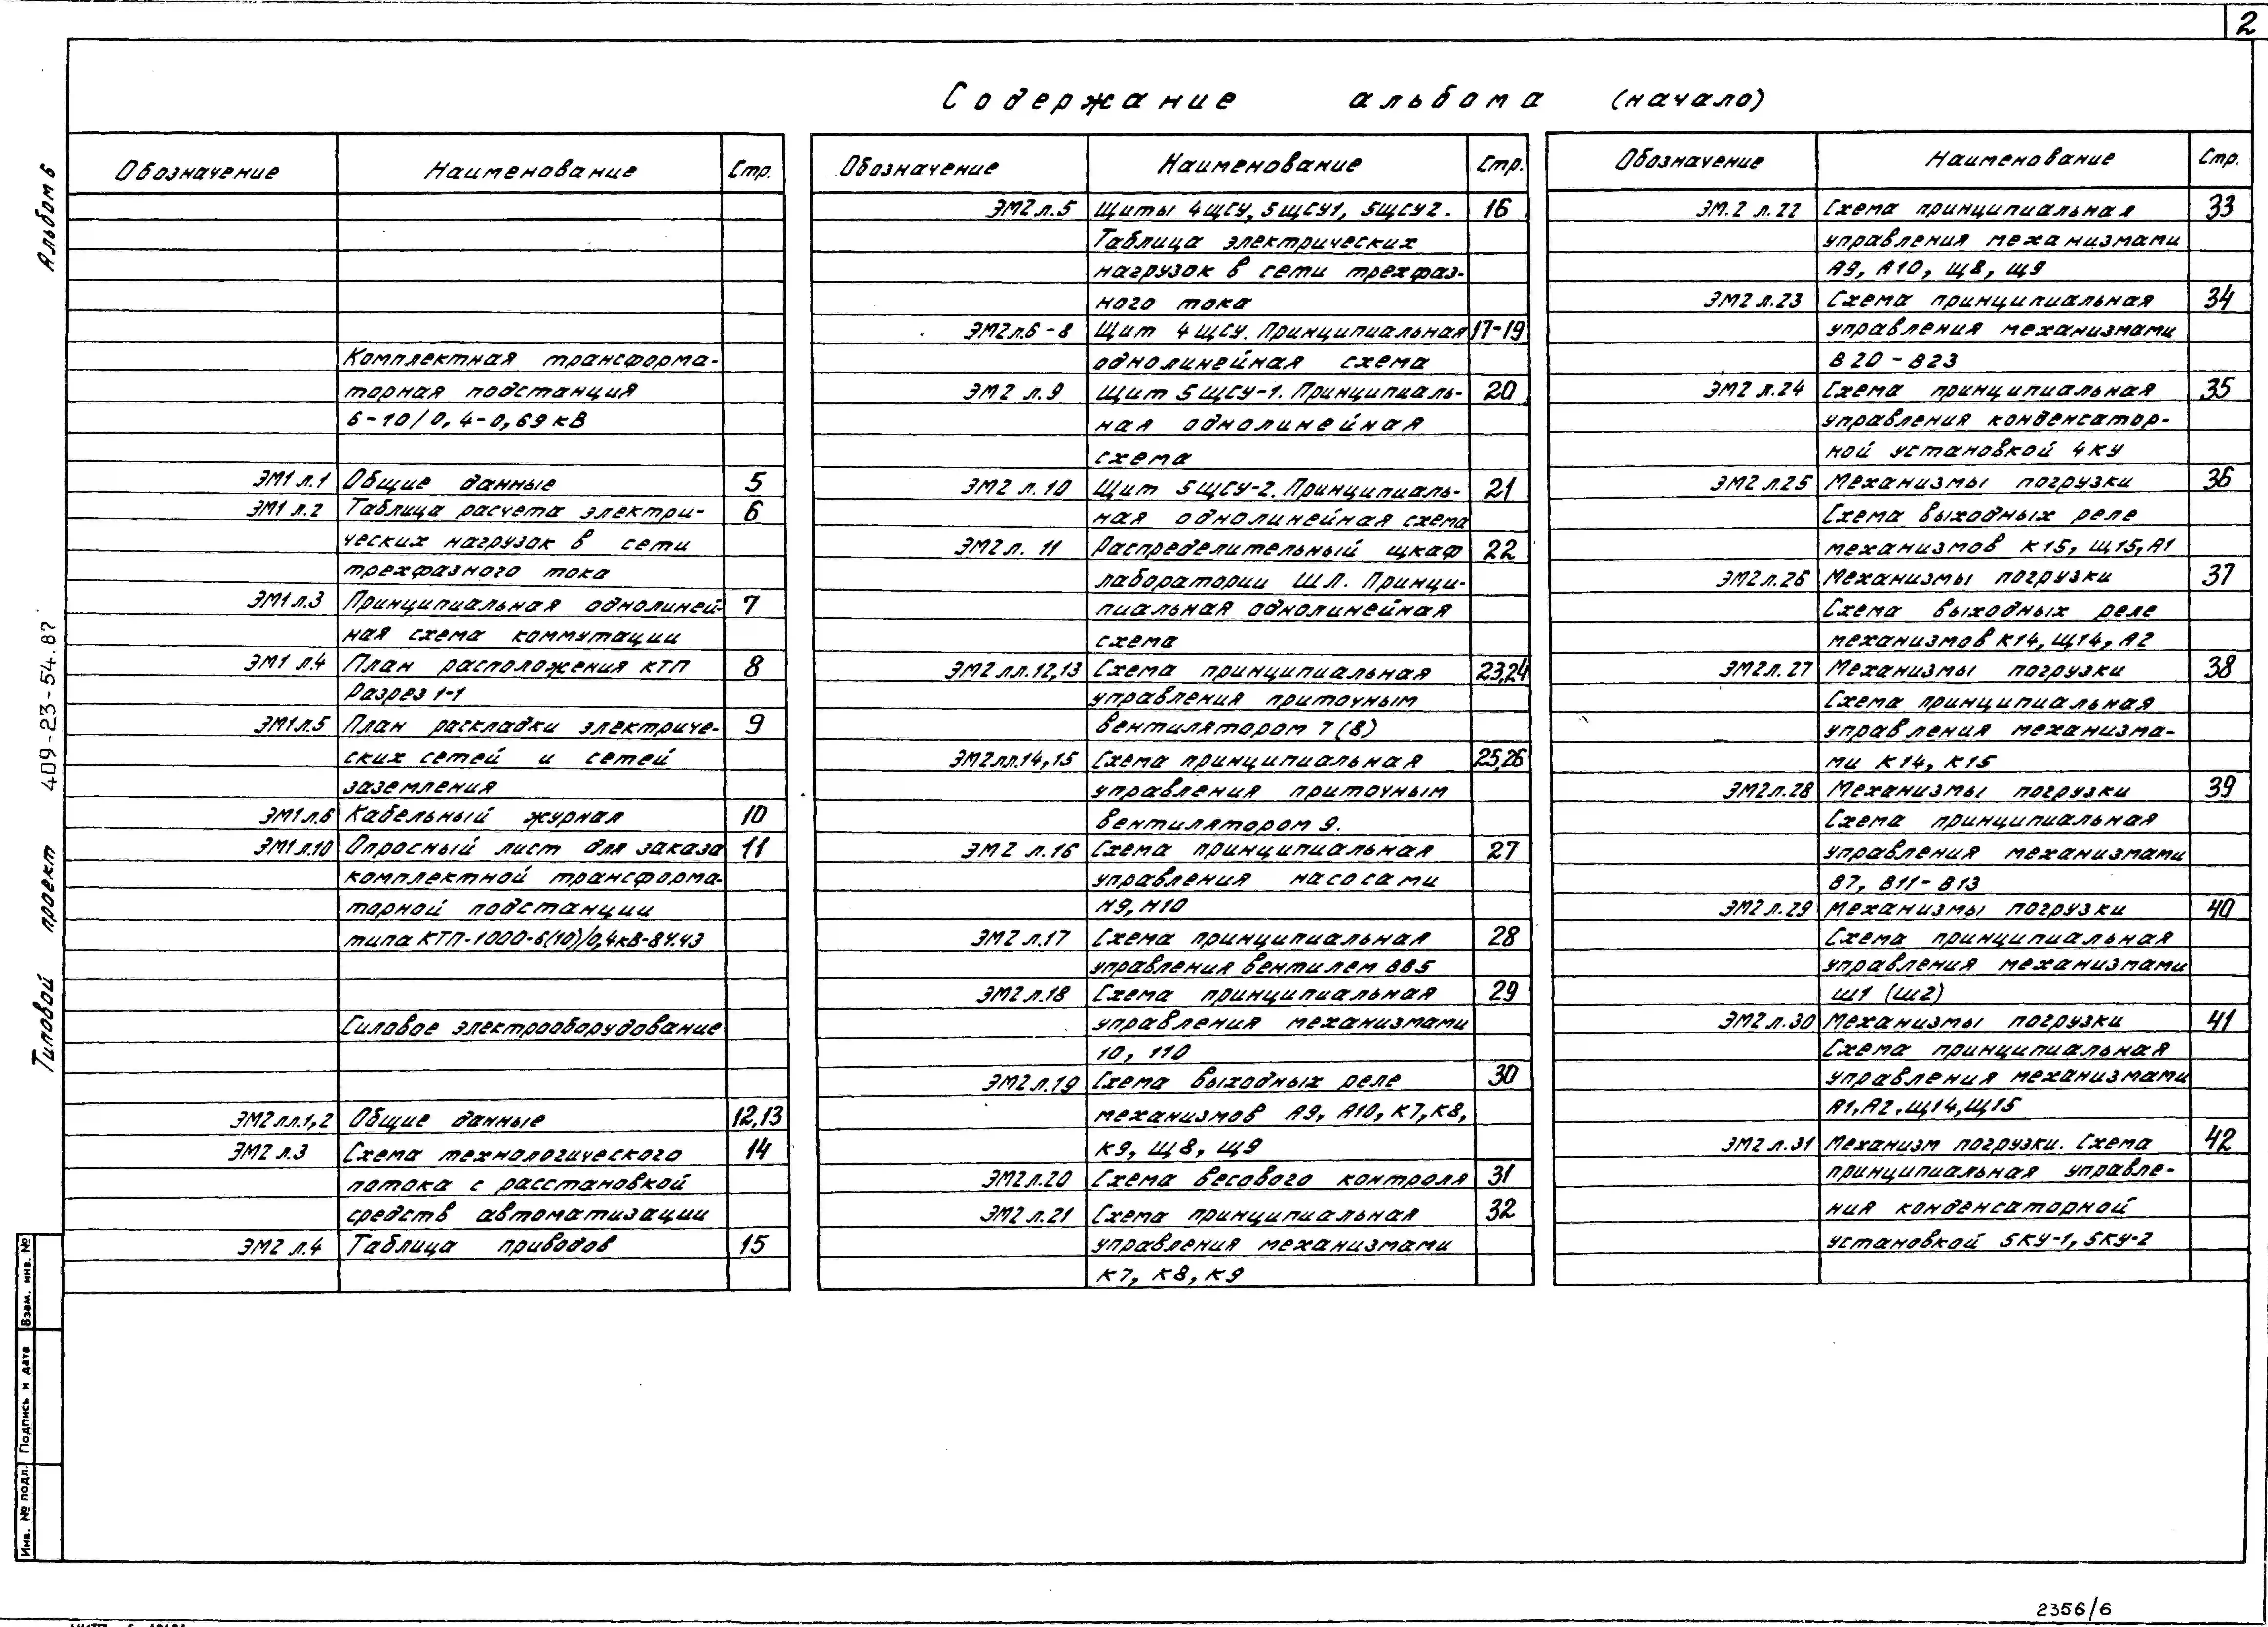 2
Содержание альбома (начало)
Альбом 6
Типовой проект 409-23-54.87
Обозначение Наименование Стр.
Комплектная трансформа-
торная подстанция
6-10/0,4-0,69 кВ
ЭМ1 л.1 Общие данные 5
ЭМ1 л.2 Таблица расчета электри- 6
ческих нагрузок в сети
трехфазного тока
ЭМ1 л.3 Принципиальная однолиней- 7
ная схема коммутации
ЭМ1 л.4 План расположения КТП 8
Разрез 1-1
ЭМ1 л.5 План раскладки электриче- 9
ских сетей и сетей
заземления
ЭМ1 л.6 Кабельный журнал 10
ЭМ1 л.10 Опросный лист для заказа 11
комплектной трансформа-
торной подстанции
типа КТП-1000-6(10)/0,4кВ-81.У3
Силовое электрооборудование
ЭМ2 лл.1,2 Общие данные 12,13
ЭМ2 л.3 Схема технологического 14
потока с расстановкой
средств автоматизации
ЭМ2 л.4 Таблица приводов 15
Обозначение Наименование Стр.
ЭМ2 л.5 Щиты 4ЩСУ, 5ЩСУ1, 5ЩСУ2. 16
Таблица электрических
нагрузок в сети трехфаз-
ного тока
ЭМ2 л.6-8 Щит 4ЩСУ. Принципиальная 17-19
однолинейная схема
ЭМ2 л.9 Щит 5ЩСУ-1. Принципиаль- 20
ная однолинейная
схема
ЭМ2 л.10 Щит 5ЩСУ-2. Принципиаль- 21
ная однолинейная схема
ЭМ2 л. 11 Распределительный шкаф 22
лаборатории ШЛ. Принци-
пиальная однолинейная
схема
ЭМ2 лл.12,13 Схема принципиальная 23,24
управления приточным
вентилятором 7(8)
ЭМ2 лл.14,15 Схема принципиальная 25,26
управления приточным
вентилятором 9.
ЭМ2 л.16 Схема принципиальная 27
управления насосами
Н9, Н10
ЭМ2 л.17 Схема принципиальная 28
управления вентилем ВВ5
ЭМ2 л.18 Схема принципиальная 29
управления механизмами
10, 110
ЭМ2 л.19 Схема выходных реле 30
механизмов А9, А10, К7, К8,
К9, Щ8, Щ9
ЭМ2 л.20 Схема весового контроля 31
ЭМ2 л.21 Схема принципиальная 32
управления механизмами
К7, К8, К9
Обозначение Наименование Стр.
ЭМ.2 л.22 Схема принципиальная 33
управления механизмами
А9, А10, Щ8, Щ9
ЭМ2 л.23 Схема принципиальная 34
управления механизмами
В20 - В23
ЭМ2 л.24 Схема принципиальная 35
управления конденсатор-
ной установкой 4КУ
ЭМ2 л.25 Механизмы погрузки 36
Схема выходных реле
механизмов К15, Щ15, А1
ЭМ2 л.26 Механизмы погрузки 37
Схема выходных реле
механизмов К14, Щ14, А2
ЭМ2 л.27 Механизмы погрузки 38
Схема принципиальная
управления механизма-
ми К14, К15
ЭМ2 л.28 Механизмы погрузки 39
Схема принципиальная
управления механизмами
В7, В11-В13
ЭМ2 л.29 Механизмы погрузки 40
Схема принципиальная
управления механизмами
Ш1 (Ш2)
ЭМ2 л.30 Механизмы погрузки 41
Схема принципиальная
управления механизмами
А1, А2, Щ14, Щ15
ЭМ2 л.31 Механизм погрузки. Схема 42
принципиальная управле-
ния конденсаторной
установкой 5КУ-1, 5КУ-2
Взам. инв. №
Подпись и дата
Инв. № подл.
2356/6